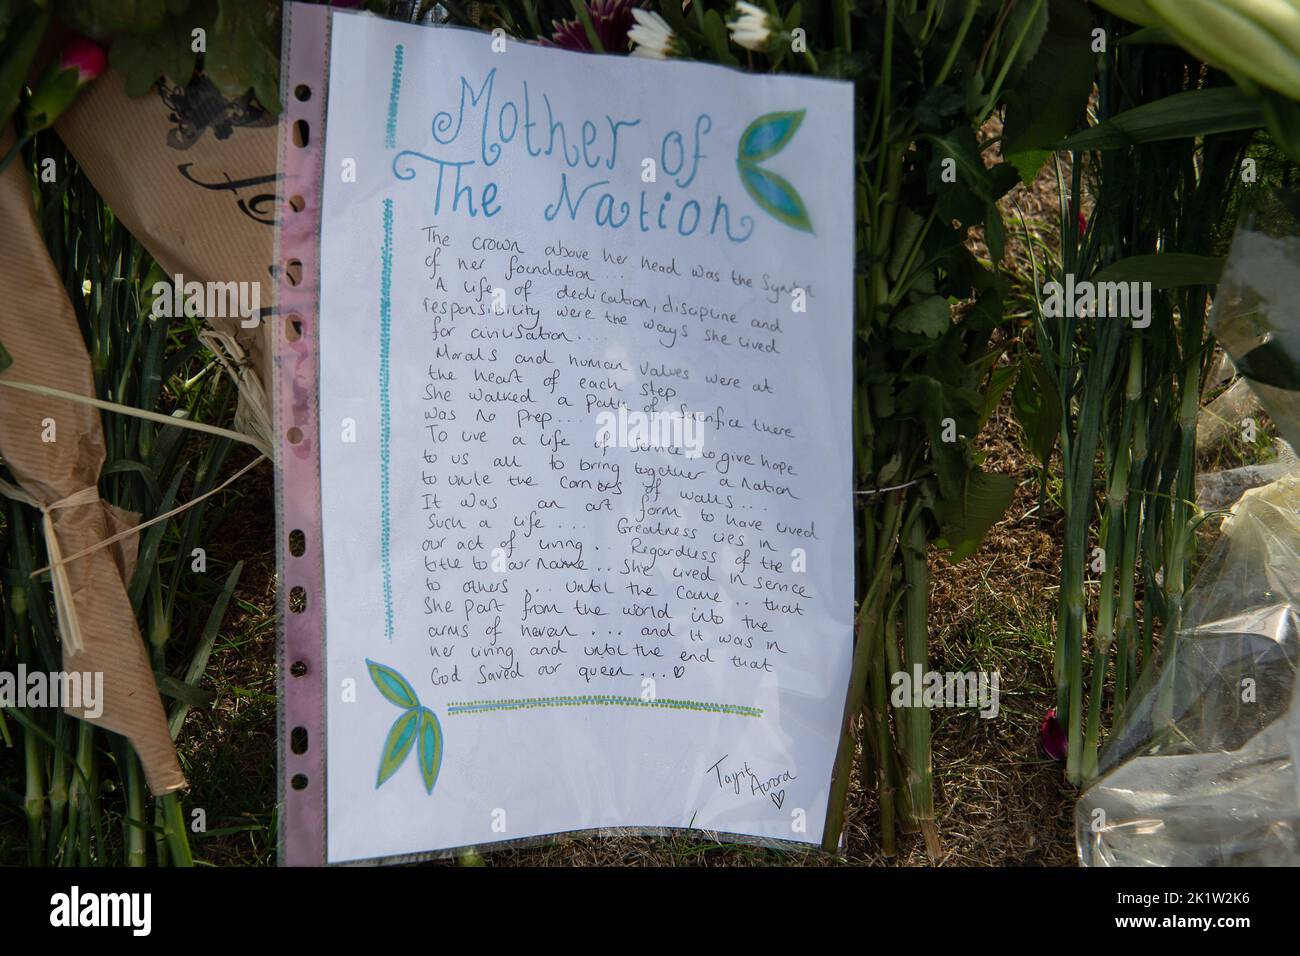 Mother of
The Nation
The crown above her head was the symbol
of her foundation ...
A life of dedication, discipline and
responsibility were the ways she lived
for civilisation...
Morals and human values were at
the heart of each step
She walked a path of sacrifice there
was no prep....
To live a life of service, to give hope
to us all to bring together a nation
to unite the corners of walls....
It was an art form to have lived
such a life ... Greatness lies in
our act of living .. Regardless of the
title to our name .. She lived in service
to others ... until the came .. that
She part from the world into the
arms of heven .... and it was in
her living and until the end that
God saved our queen ... ♡
Tajit
Aurora
♡
for
alamy
Image ID: 2K1W2K6
www.alamy.com